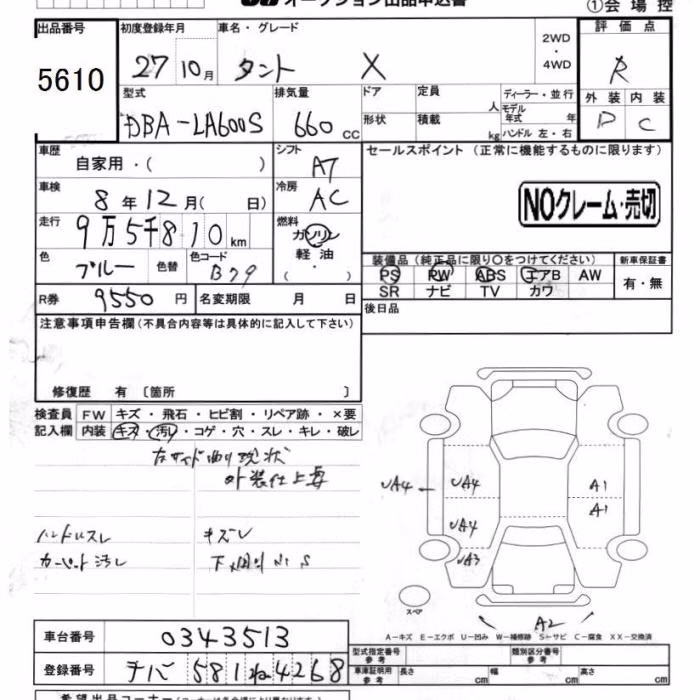 オークション出品申込書
①会場控
出品番号
5610
初度登録年月
27 10月
車名・グレード
タント X
2WD
・
4WD
評価点
R
外装 内装
D C
型式
DBA-LA600S
排気量
660 CC
ドア
形状
定員 人
積載 kg
ディーラー・並行
モデル年式 年
ハンドル 左・右
車歴
自家用・( )
シフト
AT
車検
8年12月( 日)
冷房
AC
走行
9万5千810km
燃料
ガソリン
・
軽油
( ・ )
色
ブルー
色替
色コード
B79
R券
9550円
名変期限 月 日
セールスポイント(正常に機能するものに限ります)
NOクレーム・売切
装備品(純正品に限り〇をつけてください)
PS PW ABS エアB AW
SR ナビ TV カワ
新車保証書
有・無
後日品
注意事項申告欄(不具合内容等は具体的に記入して下さい)
修復歴 有 〔箇所 〕
検査員記入欄
FW キズ・飛石・ヒビ割・リペア跡・×要
内装 キズ・汚レ・コゲ・穴・スレ・キレ・破レ
左サイド曲り現状
外装仕上要
ハンドルスレ キズレ
カーペット汚レ
UA4 UA4 A1
UA4 A1
UA3
スペア
A2
A-キズ E-エクボ U-凹み W-補修跡 S-サビ C-腐食 XX-交換済
車台番号
0343513
登録番号
チバ 581 ね 4268
型式指定番号
参考
類別区分番号
参考
車庫証明用
参考
長さ cm 幅 cm 高さ cm
希望出品コーナー